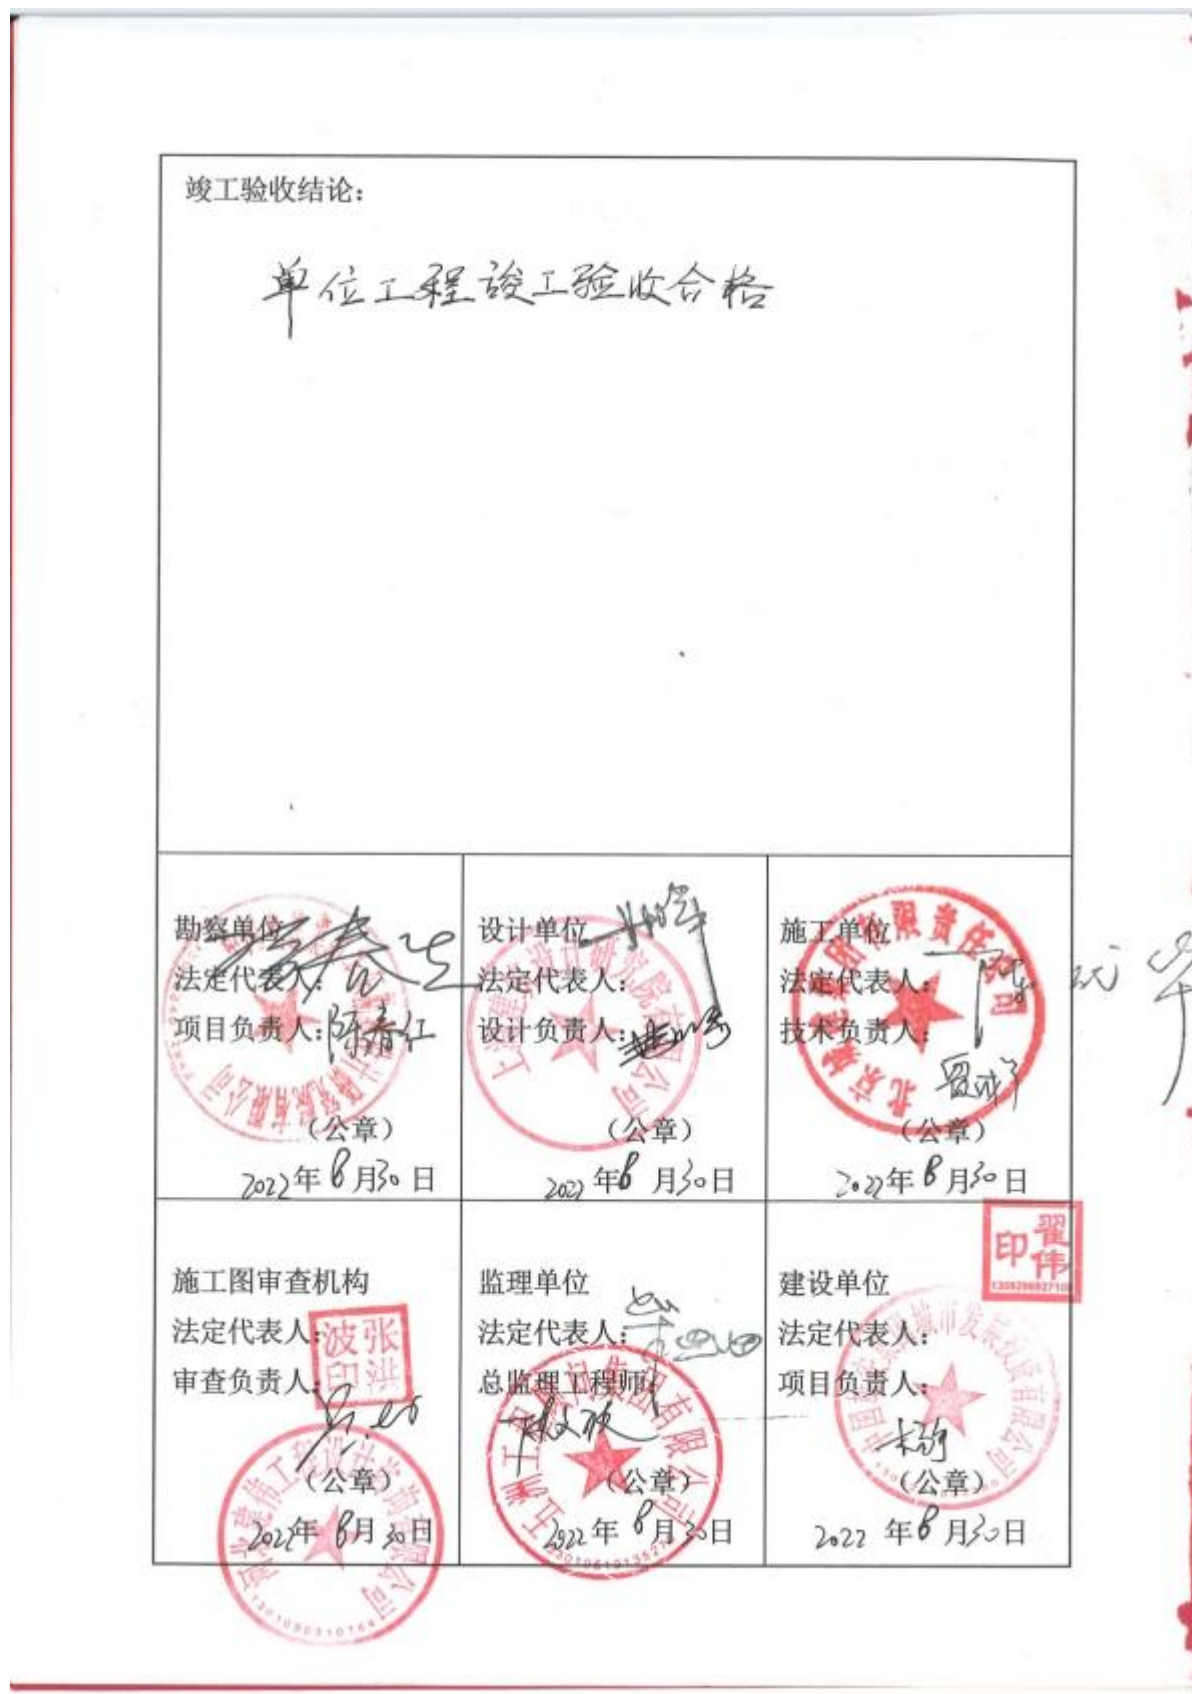 竣工验收结论：
单位工程竣工验收合格
勘察单位
法定代表人：
项目负责人：陈春红
（公章）
2022年8月30日
设计单位
法定代表人：
设计负责人：
（公章）
2022年8月30日
施工单位
法定代表人：
技术负责人：
（公章）
2022年8月30日
北京城建集团有限责任公司
施工图审查机构
法定代表人：
张洪波印
审查负责人：
（公章）
2022年8月30日
河北建伟工程设计咨询有限公司
监理单位
法定代表人：
总监理工程师：
（公章）
2022年8月30日
五洲工程顾问集团有限公司
翟伟印
建设单位
法定代表人：
项目负责人：
（公章）
2022年8月30日